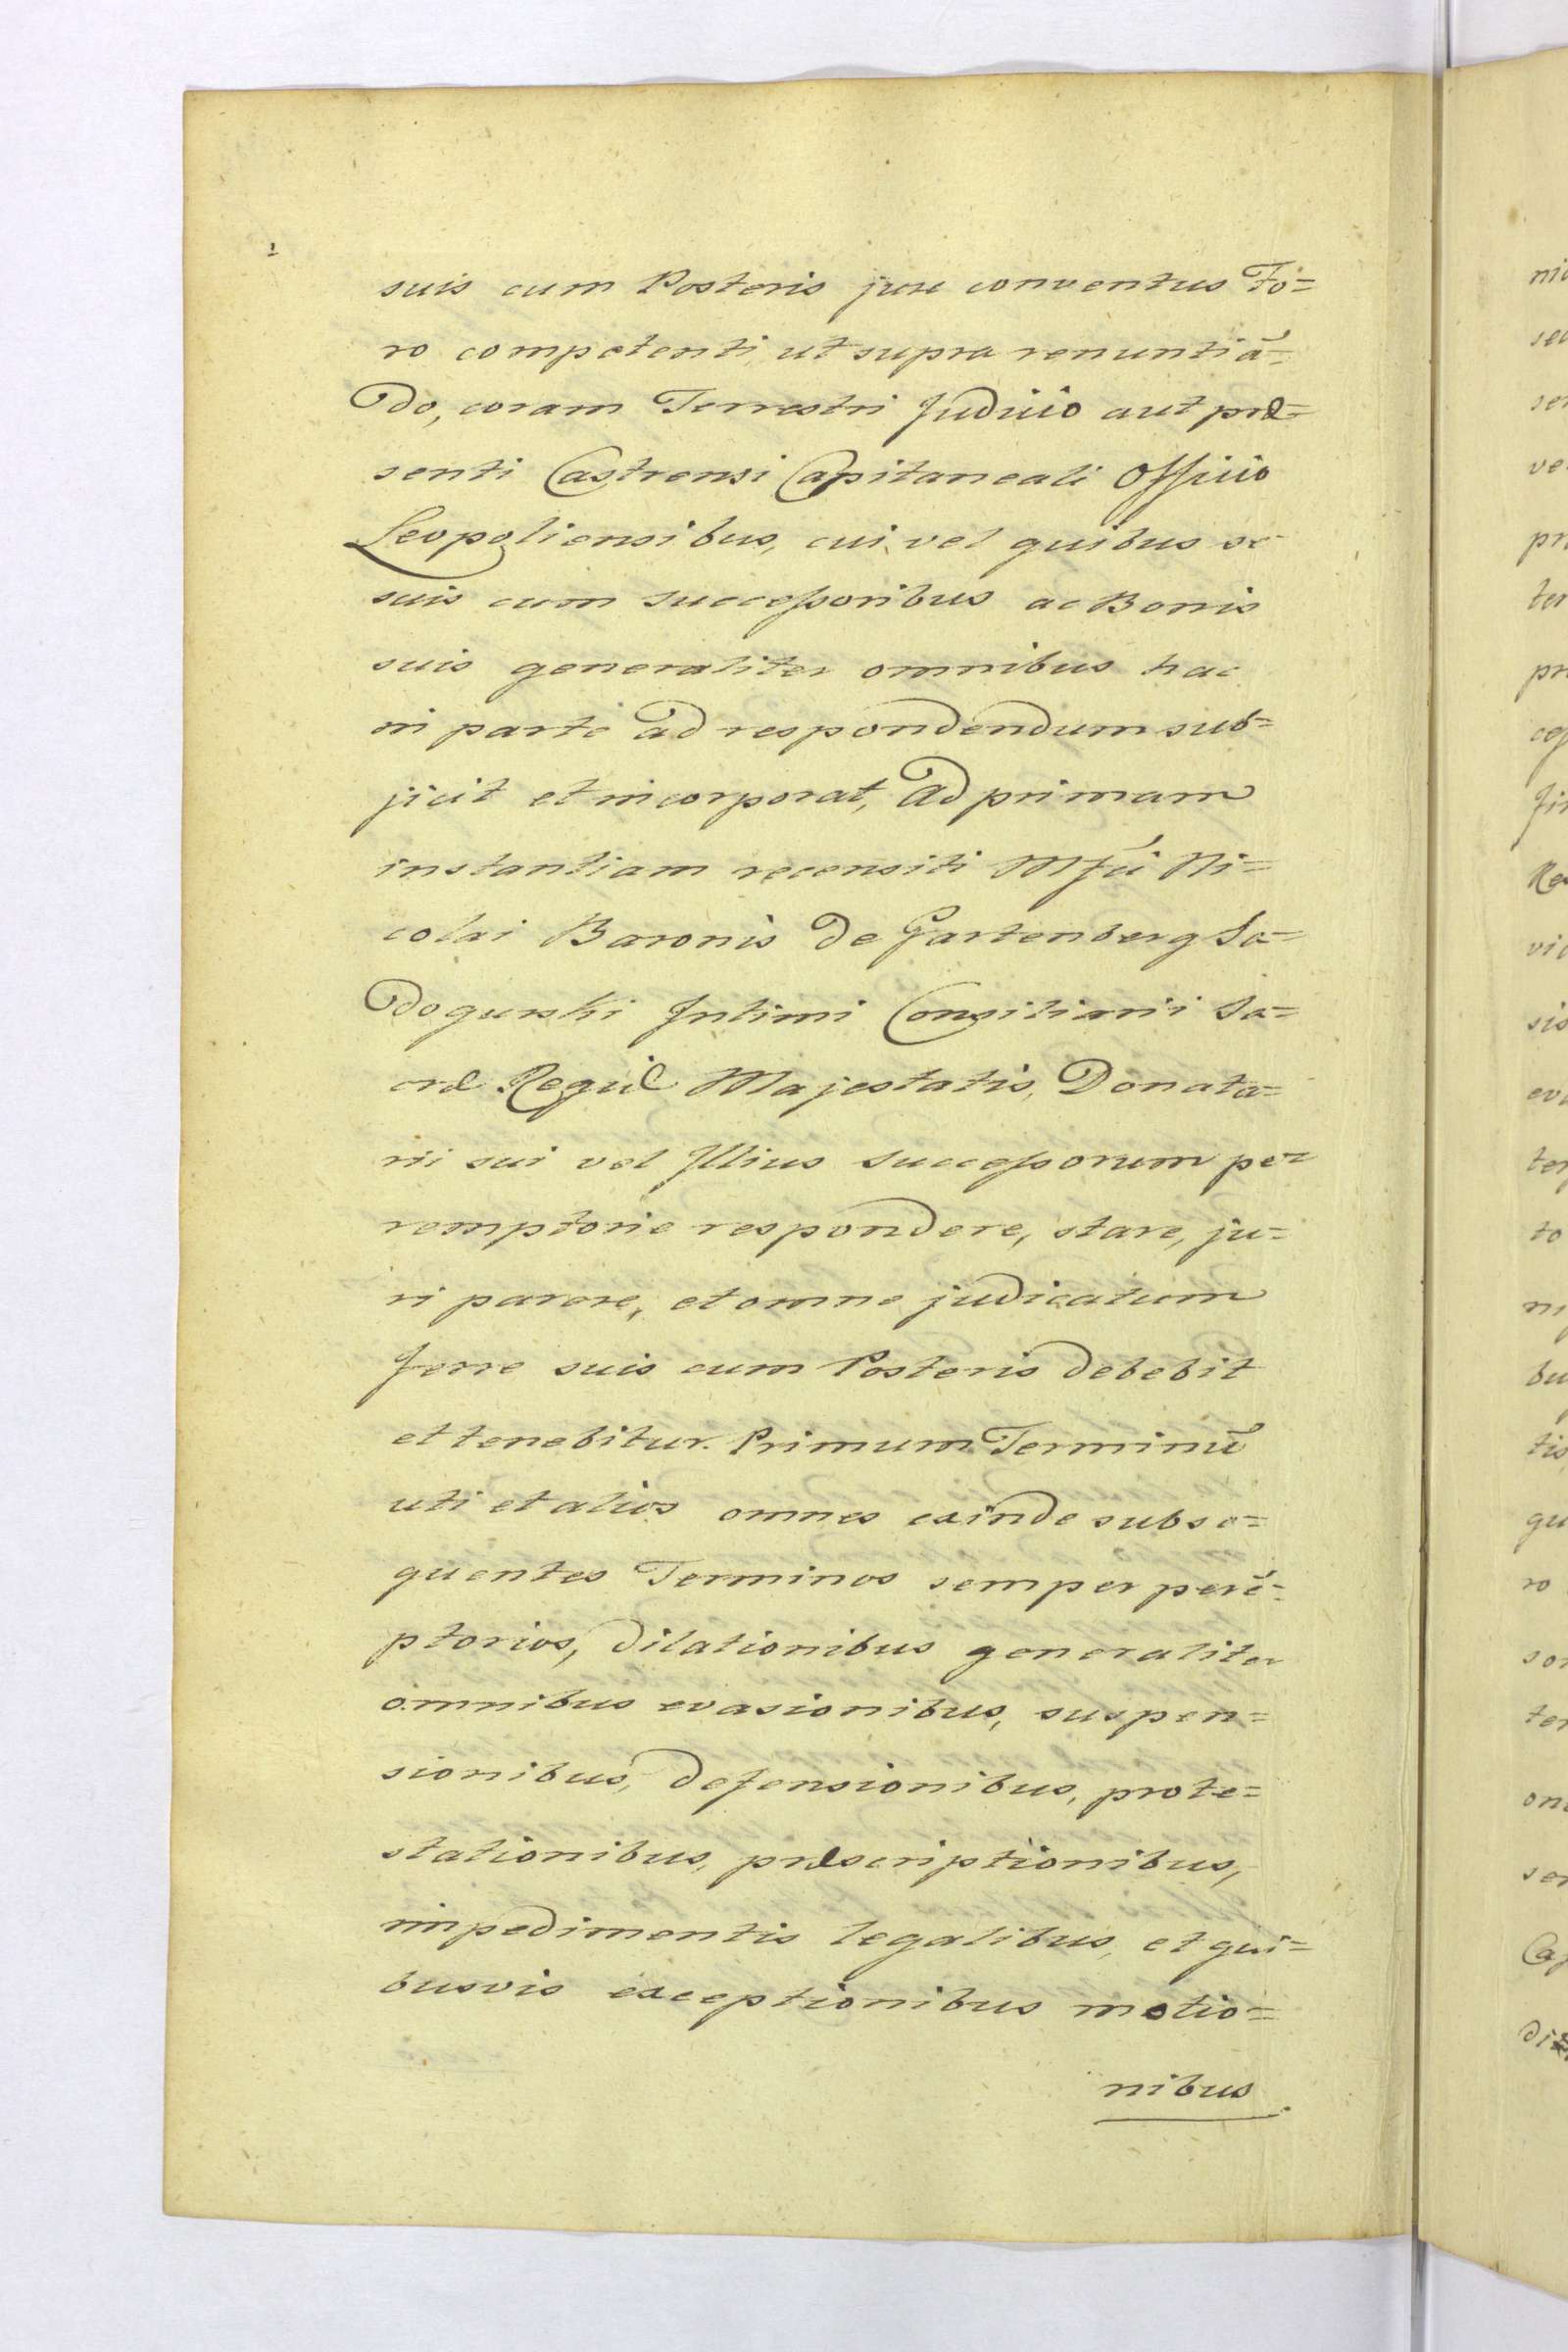 suis cum Posteris jure conventus Fo=
ro competenti ut supra renuntiā=
do, coram Terrestri Judicio aut præ=
senti Castrensi Capitaneali Officio
Leopoliensibus, cui vel quibus se
suis cum successoribus ac Bonis
suis generaliter omnibus hac
in parte ad respondendum sub=
jicit et incorporat, ad primam
instantiam recensiti Mfci Ni=
colai Baronis de Gartenberg Sa=
dogurski Intimi Consiliarii Sa=
cræ Regiæ Majestatis, Donata=
rii sui vel Illius successorum pe=
remptorie respondere, stare, ju=
ri parere, et omne judicatum
ferre suis cum Posteris debebit
et tenebitur. Primum Terminū
uti et alios omnes exinde subse=
quentes Terminos semper perē=
ptorios, dilationibus generaliter
omnibus evasionibus, suspen=
sionibus, defensionibus, prote=
stationibus, præscriptionibus,
impedimentis legalibus, et qui=
busvis exceptionibus motio=
nibus